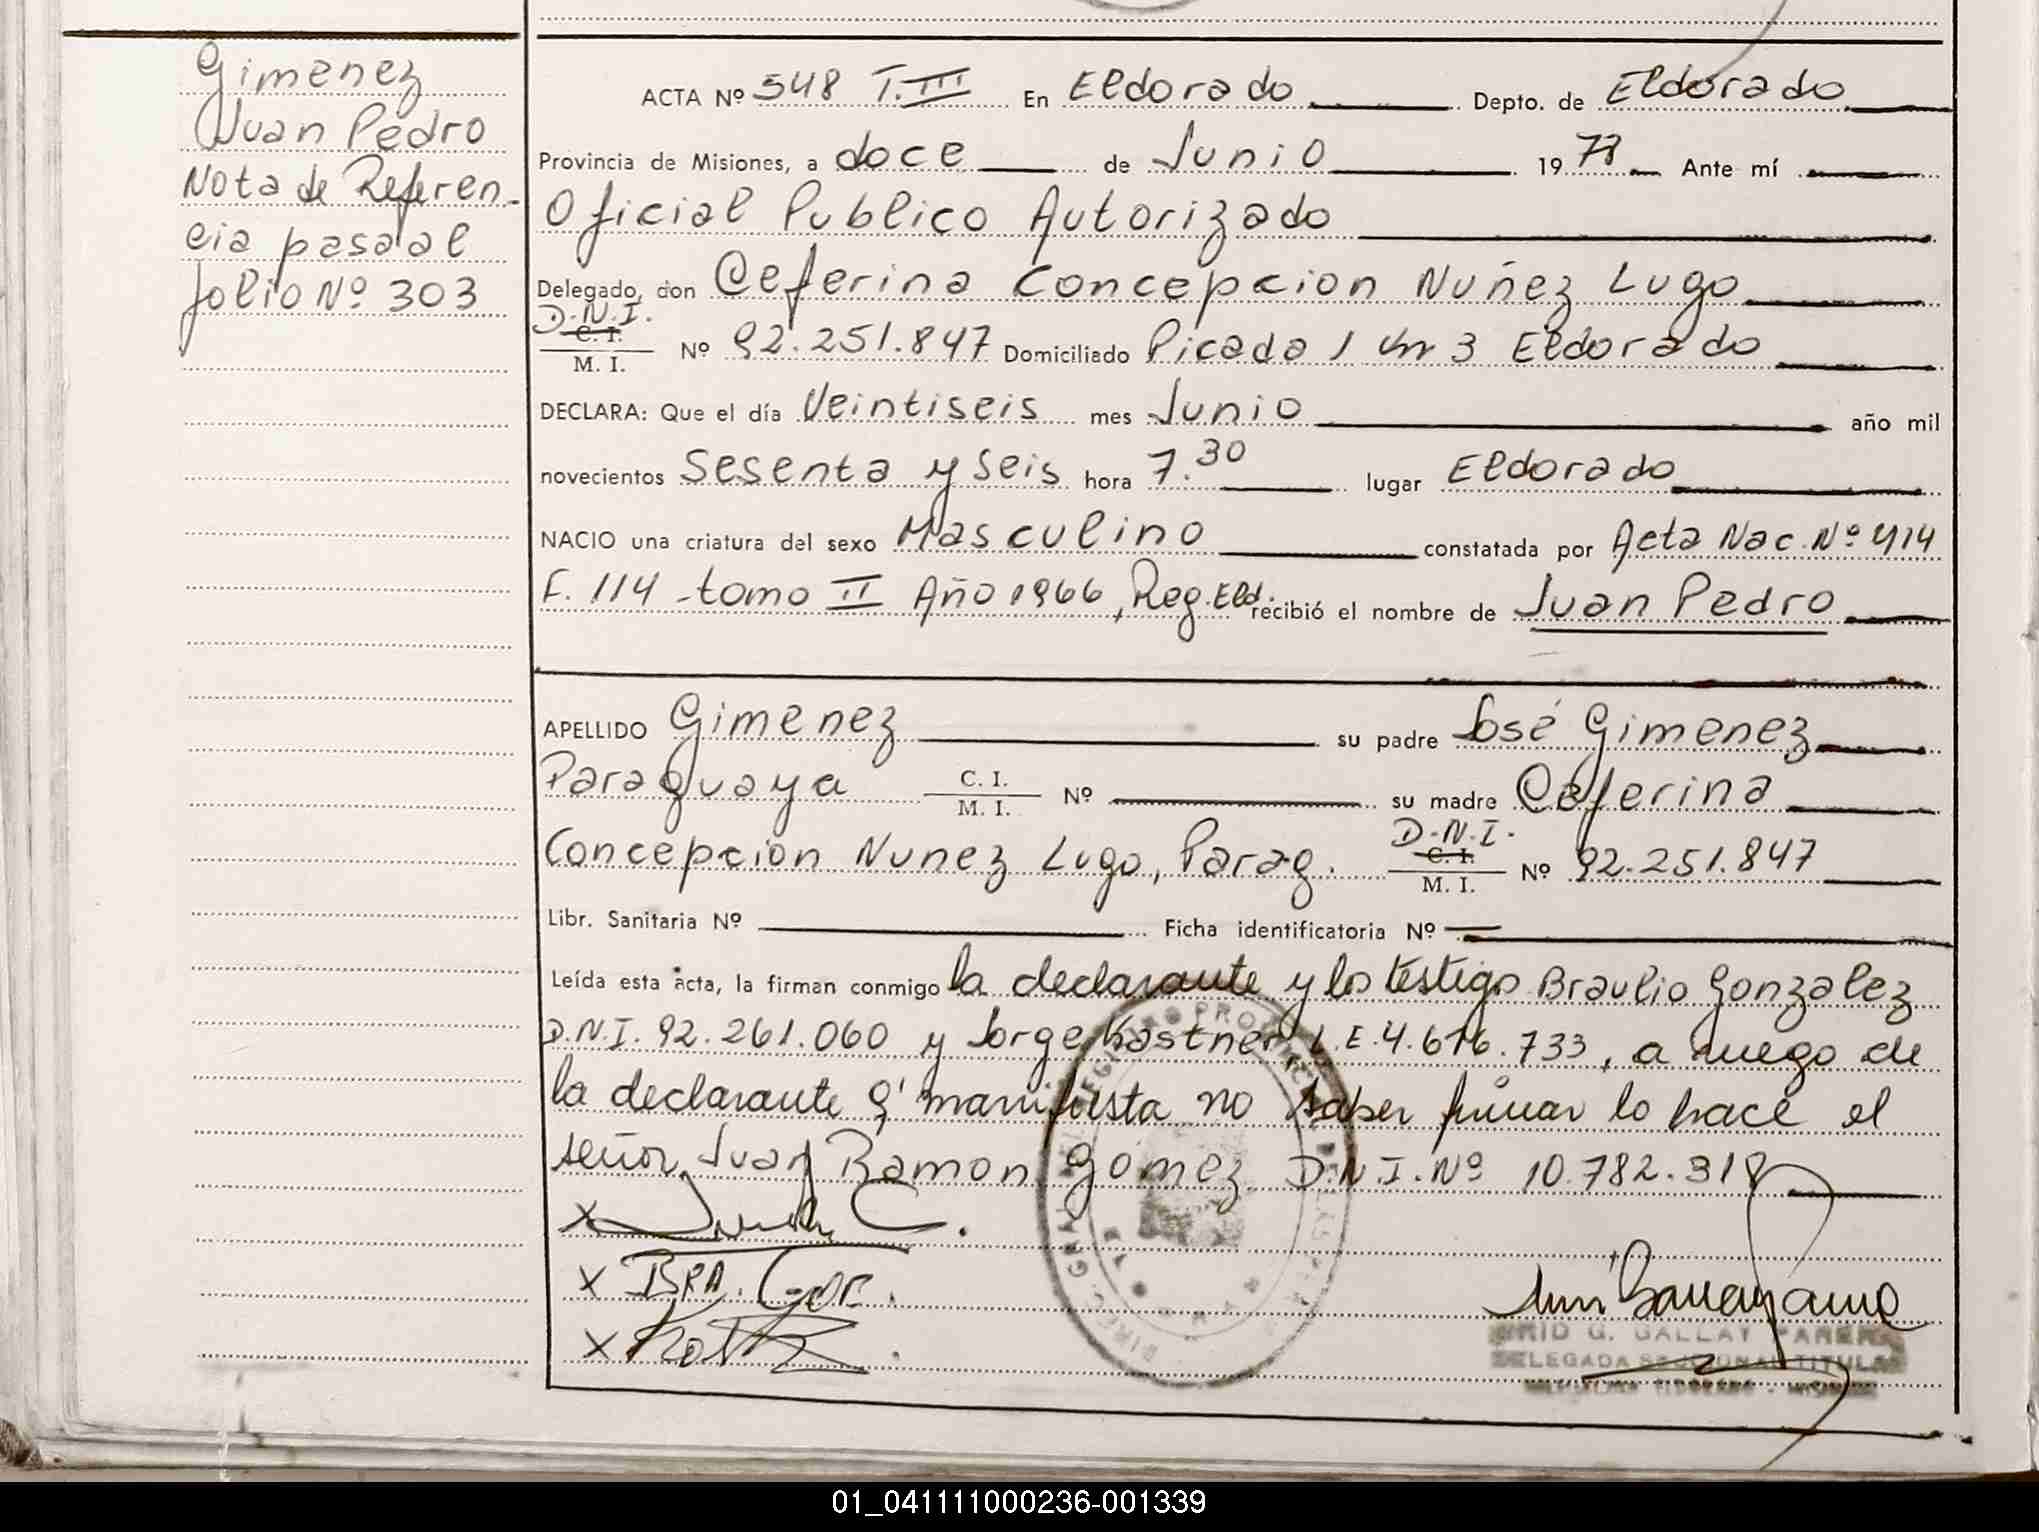 Gimenez
Juan Pedro
Nota de Referen-
cia pasa al
folio Nº 303
ACTA Nº 548 T. III En Eldorado Depto. de Eldorado
Provincia de Misiones, a doce de Junio 19 78 Ante mí
Oficial Publico Autorizado
Delegado, don Ceferina Concepcion Nuñez Lugo
D.N.I.
C. I.
M. I. Nº 92.251.847 Domiciliado Picada 1 Km 3 Eldorado
DECLARA: Que el día Veintiseis mes Junio año mil
novecientos Sesenta y Seis hora 7.30 lugar Eldorado
NACIO una criatura del sexo Masculino constatada por Acta Nac. Nº 414
F. 114 tomo II Año 1966, Reg. Eld. recibió el nombre de Juan Pedro
APELLIDO Gimenez su padre José Gimenez
Paraguaya C. I. M. I. Nº su madre Ceferina
Concepcion Nunez Lugo, Parag. D.N.I. C. I. M. I. Nº 92.251.847
Libr. Sanitaria Nº Ficha identificatoria Nº
Leída esta acta, la firman conmigo la declarante y los testigo Braulio Gonzalez
D.N.I. 92.261.060 y Jorge Kastner, L.E. 4.676.733, a ruego de
la declarante q' manifiesta no saber firmar lo hace el
señor Juan Ramon Gomez D.N.I. Nº 10.782.318
X Juan C.
X BRA. Gon.
X
G. GALLAY PARERA
DELEGADA SECCIONAL TITULAR
01_041111000236-001339